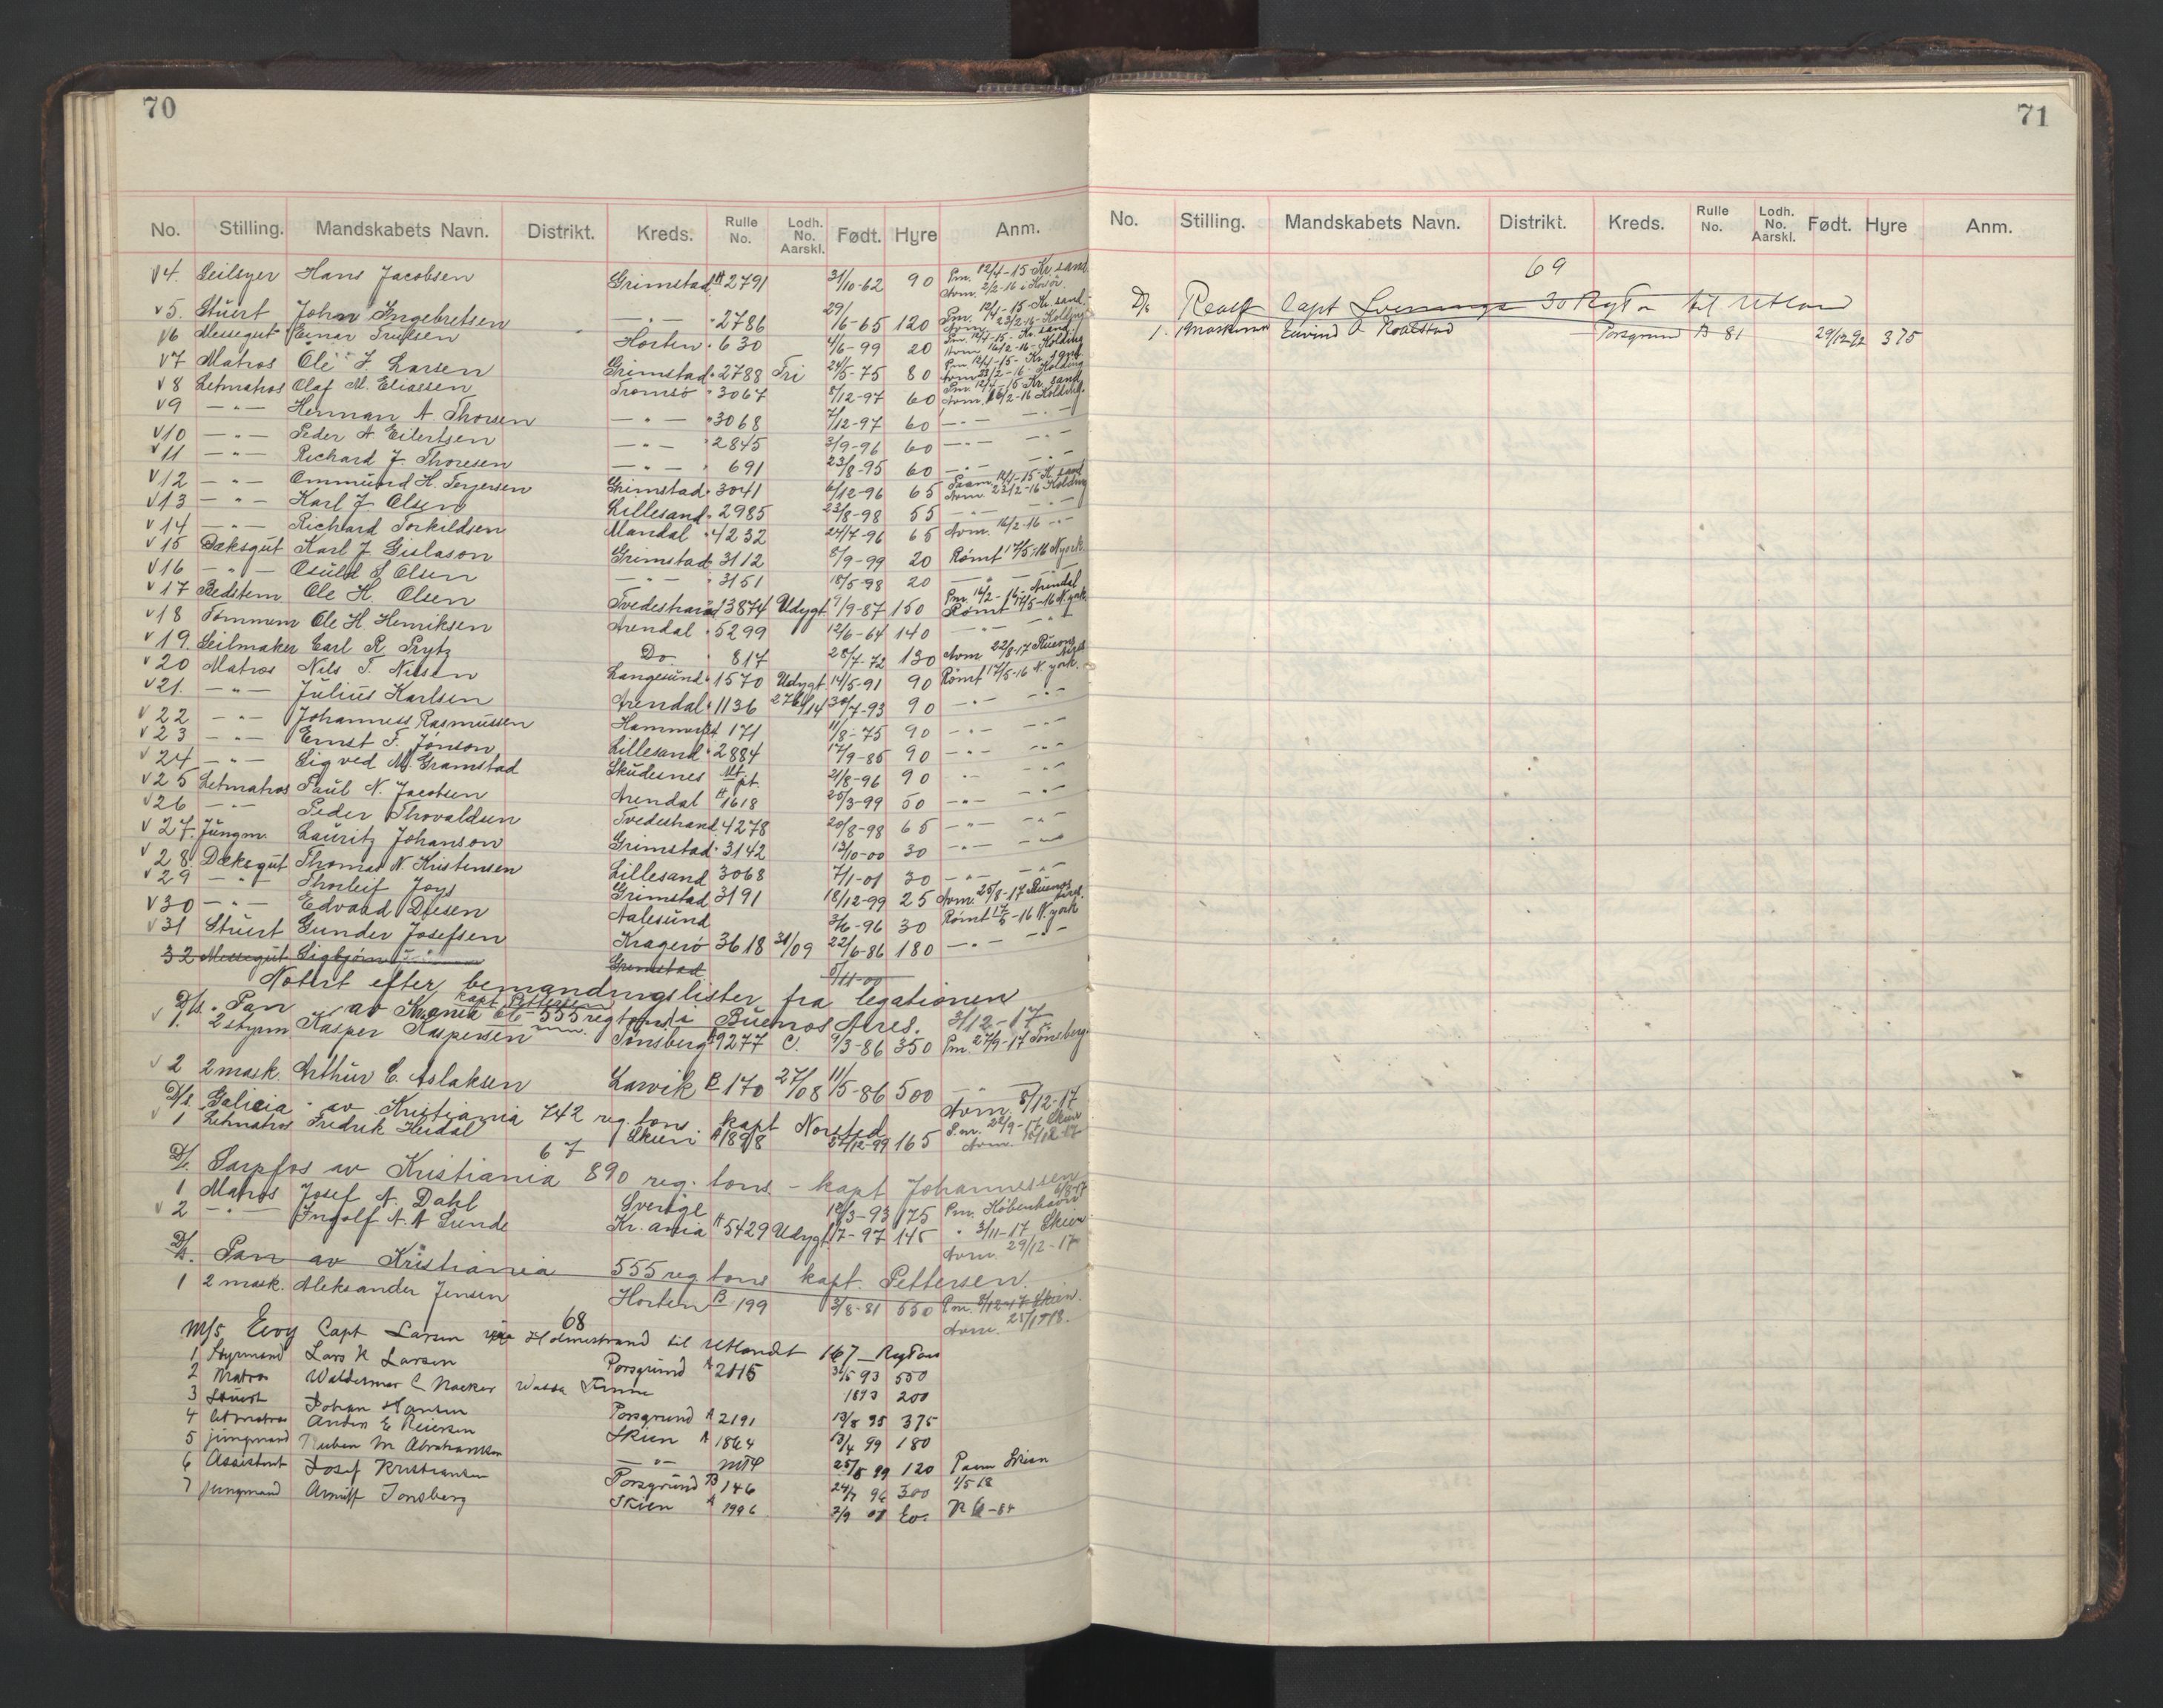 70
No. Stilling. Mandskabets Navn. Distrikt. Kreds. Rulle No. Lodh. No. Aarskl. Født. Hyre Anm.
4. Seilsyer Hans Jacobsen Grimstad A 2791 31/10-62 90 Pm. 12/4-15 Kr.sand
5. Stuert John Ingebretsen — " — " 2786 29/6-65 120 Pm. 12/4-15 Kr. sand. Avm. 23/2-16 Kolding
6 Messegut Einar Trulsen Horten " 630 4/6-99 20 Avm 16/2-16 - Kolding
7 Matros Ole J. Larsen Grimstad " 2788 Fri 24/5-75 80 Avm 23/2-16 Kolding
8 Letmatros Olaf M. Eliassen Tromsø " 3067 8/12-97 60 Pm. 12/4-15 Kr. sand Avm. 16/2-16 Kolding.
9 — " — Herman A. Thorsen — " — " 3068 7/12-97 60 — " — — " —
10 — " — Peder A Eilertsen — " — " 2845 3/9-96 60 — " — — " —
11 — " — Richard J. Thoresen — " — " 691 23/8-95 60 — " — — " —
12 — " — Ommund H. Terjersen Grimstad " 3041 6/12-96 65 Paam. 12/4-15 Kr. sand Avm. 23/2-16 Kolding
13 — " — Karl J. Olsen Lillesand " 2985 23/8-98 55 — " — — " —
14 — " — Richard Torkildsen Mandal " 4232 24/7-96 65 Avm. 16/2-16 — " —
15 Dæksgut Karl J. Gislason Grimstad " 3112 8/9-99 20 Rømt 17/5-16 N.york
16 — " — Osuld S Olsen — " — " 3151 18/5-98 20 — " — — " —
17 Bedstem Ole H. Olsen Tvedestrand 3874 Udygt. 9/9-87 150 Pm. 16/2-16 - Arendal Rømt 17/5-16 N.york
18 Tømmerm Ole H Henriksen Arendal " 5299 12/6-64 140 — " — — " —
19. Seilmaker Carl R. Prytz Do " 817 28/7-72 130 Avm 22/8-17 Buenos Aires
20 Matros Nils T. Nilsen Langesund " 1570 Udygt. 14/5-91 90 Rømt 17/5-16 N. york.
21. — " — Julius Karlsen Arendal " 1136 30/7-93 90 — " — — " —
22 — " — Johanness Rasmussen Hammerfest 171 11/8-75 90 — " — — " —
23 — " — Ernst F. Jonson Lillesand " 2884 17/9-85 90 — " — — " —
24 — " — Sigved M. Gramstad Skudesnes Mt. pt. 21/8-96 90 — " — — " —
25 Letmatros Paul N. Jacobsen Arendal A 1618 25/3-99 50 — " — — " —
26 — " — Peder Thovaldsen Tvedestrand 4278 20/8-98 65 — " — — " —
27. Jungm. Lauritz Johanson Grimstad " 3142 13/10-00 30 — " — — " —
28. Dæksgut Thomas N. Kristensen Lillesand 3068 7/1-01 30 — " — — " —
29 — " — Thorleif Joys Grimstad 3191 18/12-99 25 Avm. 25/8-17 Buenos Aires.
30 — " — Edvard Diesen Aalesund 3/6-96 30 Rømt 17/5-16 N. york
31 Stuert Gunder Josefsen Kragerø 3618 31/09 22/6-86 180 — " — — " —
32 Messegut Sigbjørn Grimstad 5/11-00
Notert efter bemandingslister fra legationen
i Buenos Aires. 3/12-17
D/s. Pan av Kr.ania kapt. Pettersen 555 reg tons
1. 2 styrm Kasper Kaspersen Tønsberg A 9277 C. 9/3-86 350 Pm. 27/9-17 Tønsberg.
2 2 mask. Arthur C. Aslaksen Larvik B 170 27/08 11/5-86 500 — " — Avm. 8/12-17
D/s. Galicia av Kristiania 742 reg. tons. kapt Norsted
1 Letmatros Fredrik Heidal Skien A 1898 27/12-99 165 P.m. 22/9-17 Skien
67
D/s. Sarpfos av Kristiania 890 reg. tons. - kapt Johannessen
1 Matros Josef A. Dahl Sverige 12/3-93 175 Pm. København 6/8-17
2 — " — Ingolf A. A Lunde Kr. ania A 5429 Udygt. 1/7-97 145 " 3/11-17 Skien Avm. 29/12-17
D/s. Pan av Kristiania 555 reg tons kapt. Pettersen.
1 2 mask. Aleksander Jensen Horten B 199 3/8-81 550 Pm. 8/12-17 Skien.
68
M/S Eivy Capt Larsen Holmestrand til Utlandet 167 - Rg Tons
1 Styrmand Lars K Larsen Porsgrund A 2115 31/5 93 550
2 Matros Waldemar C Wassa Finne 1893 200
3 Stuert Johan Hansen Porsgrund A 2191 13/8 95 375
4 Letmatros Anders E Reiersen Skien A 1864 13/4 99 180
5 jungmand Ruben M Abrahamsen — " — 25/8 99 120 Paam Skien
6 Assistent Josef Kristiansen Porsgrund B 146 24/7 96 300 1/5 18
7 jungmand Arnulf Tonsberg Skien A 1996 2/9 01 60. R 6-84
71
No. Stilling. Mandskabets Navn. Distrikt. Kreds. Rulle No. Lodh. No. Aarskl. Født. Hyre Anm.
69
D/s Realf Capt 30 RgTon til Utland
1. Eivind O Roalstad Porsgrund B 81 29/12 92 375